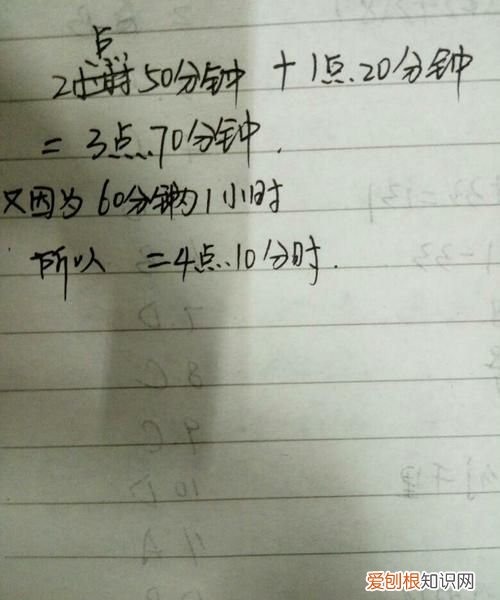 点
2小时50分钟 + 1点.20分钟
= 3点.70分钟.
又因为 60分钟为1小时
所以 =4点.10分时.
7.D
8 C
9 C
10 D
11 A
爱刨根知识网